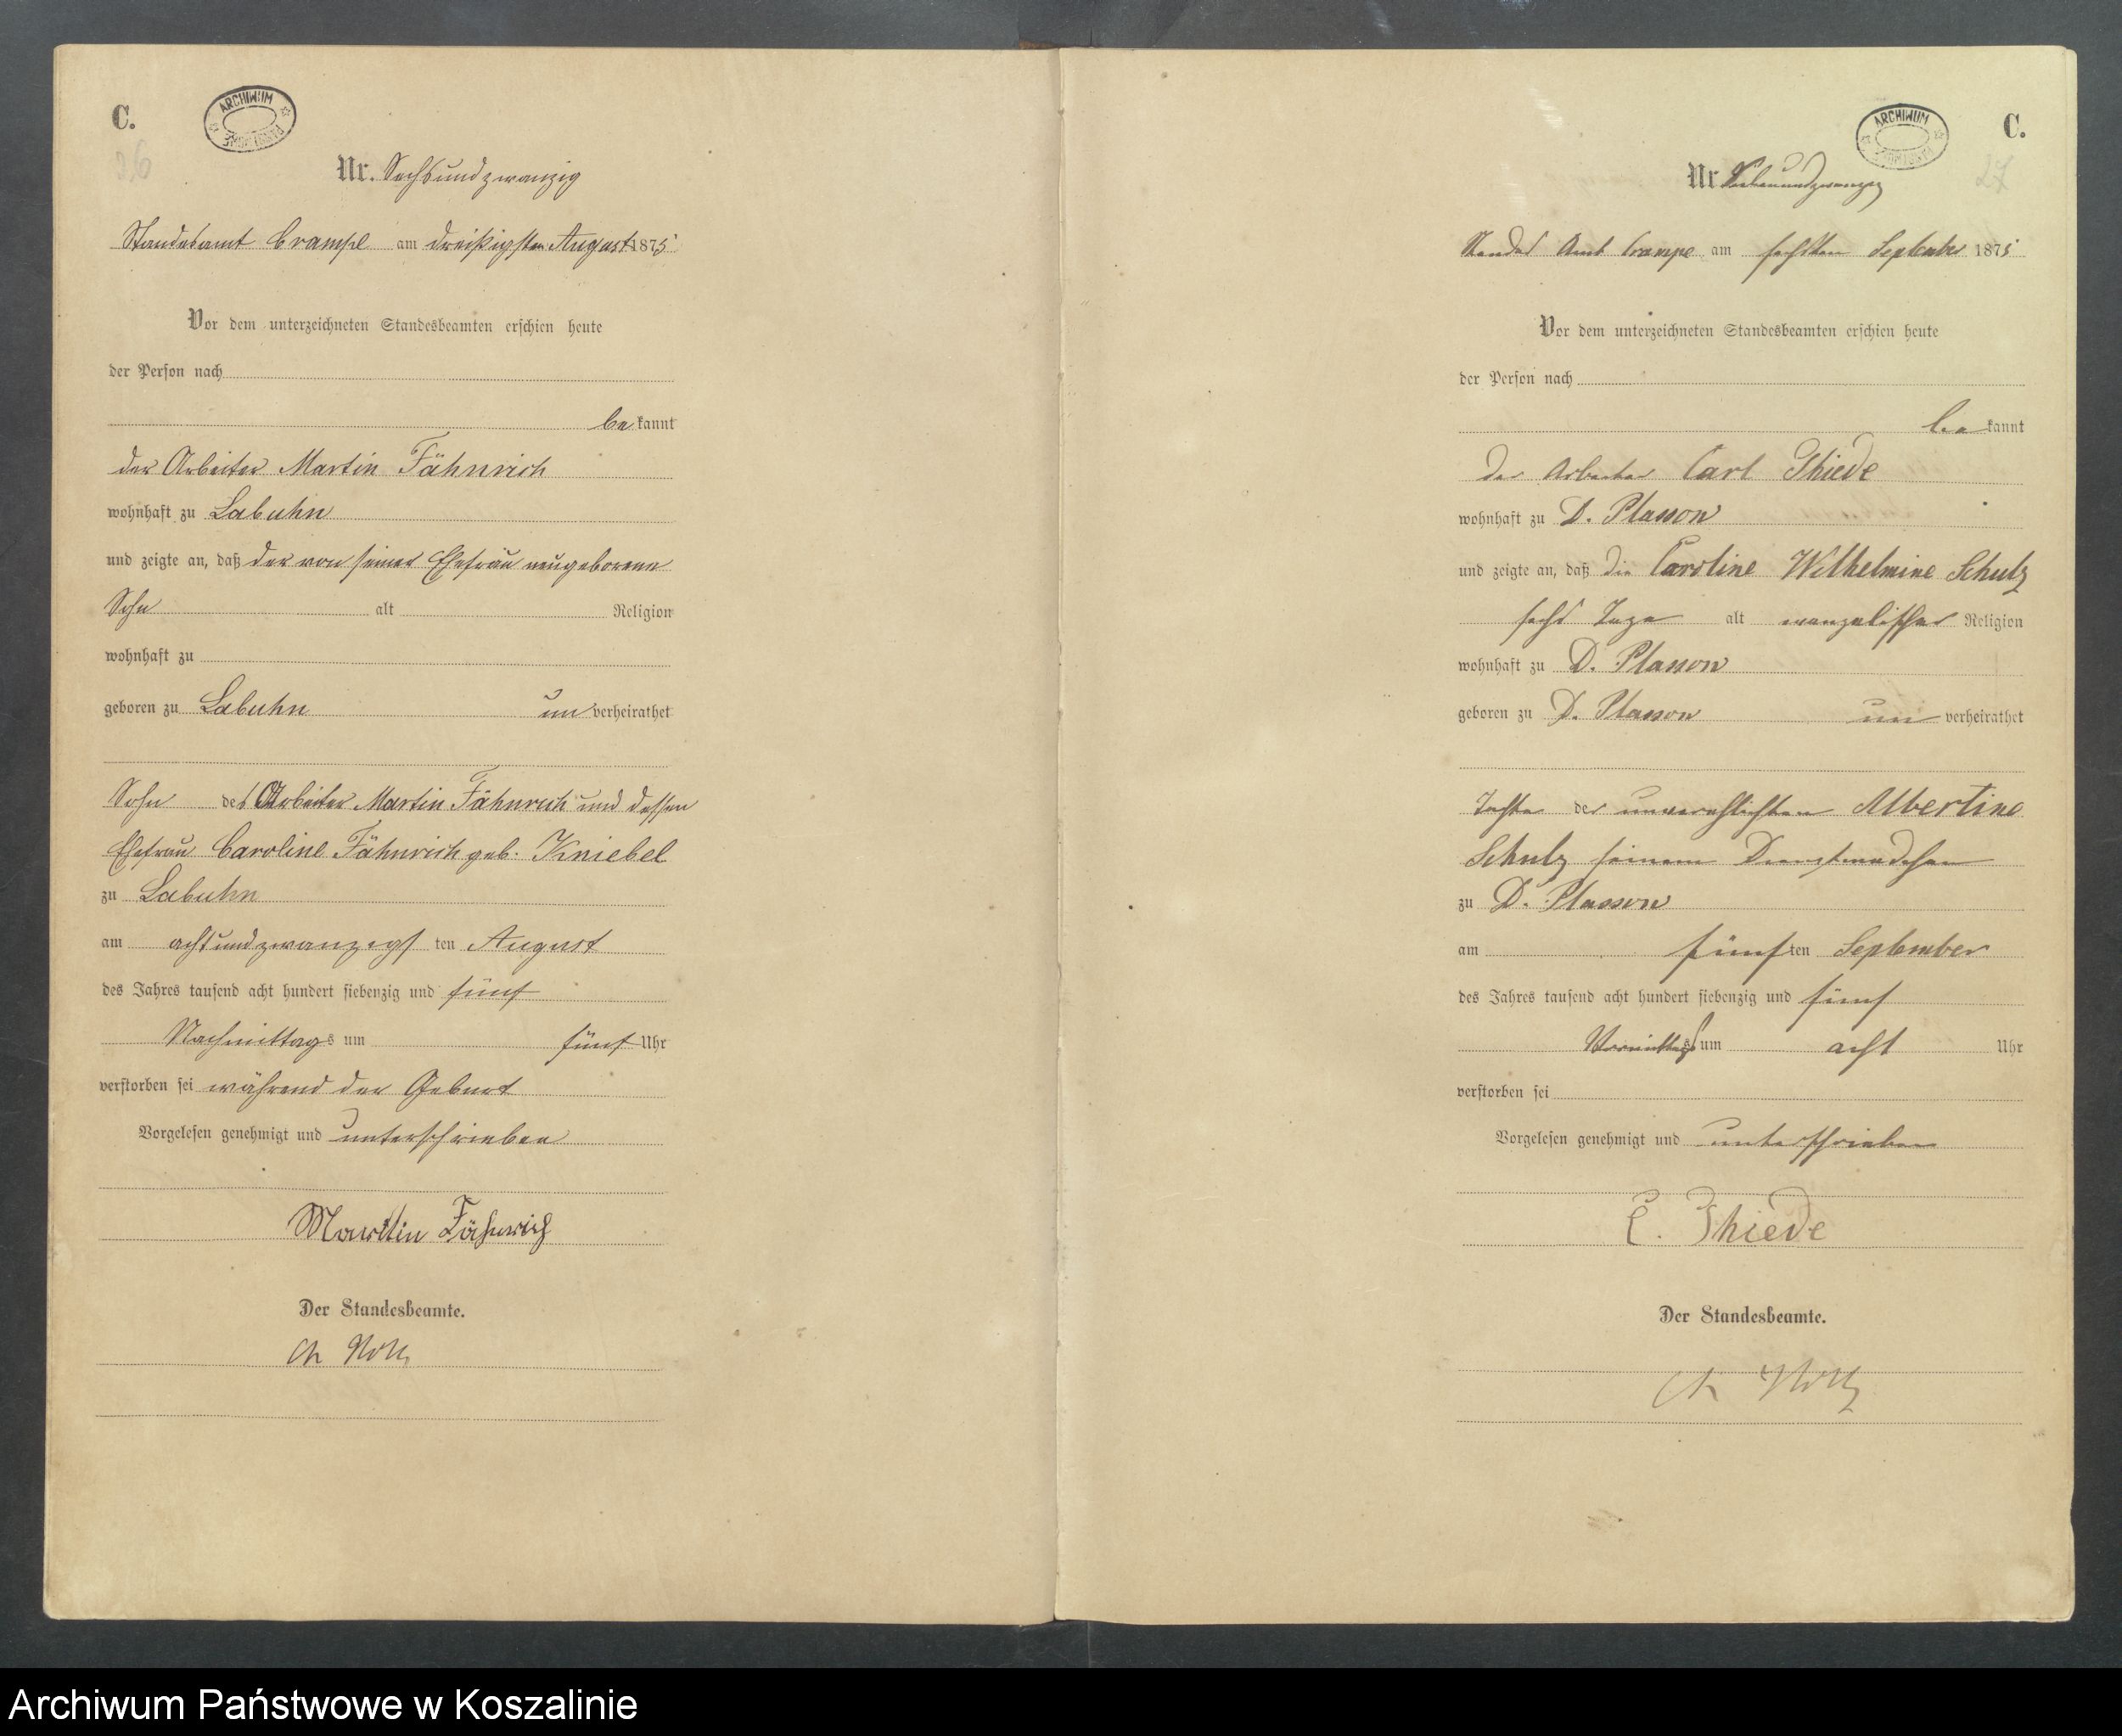 C.
ARCHIWUM PAŃSTWOWE
26
Nr. Sechsundzwanzig
Standesamt Crampe am dreißigsten August 1875
Vor dem unterzeichneten Standesbeamten erschien heute
der Person nach
be kannt
der Arbeiter Martin Fähnrich
wohnhaft zu Labuhn
und zeigte an, daß der von seiner Ehefrau neugeborene
Sohn alt Religion
wohnhaft zu
geboren zu Labuhn un verheirathet
Sohn des Arbeiter Martin Fähnrich und dessen
Ehefrau Caroline Fähnrich geb. Kniebel
zu Labuhn
am achtundzwanzigs ten August
des Jahres tausend acht hundert siebenzig und fünf
Nachmittags um fünf Uhr
verstorben sei während der Geburt
Vorgelesen genehmigt und unterschrieben
Martin Fähnrich
Der Standesbeamte.
C.
ARCHIWUM PAŃSTWOWE
27
Nr Siebenundzwanzig
Standes Amt Crampe am sechsten September 1875
Vor dem unterzeichneten Standesbeamten erschien heute
der Person nach
be kannt
Der Arbeiter Carl Thiede
wohnhaft zu D. Plassow
und zeigte an, daß die Caroline Wilhelmine Schulz
sechs Tage alt evangelischer Religion
wohnhaft zu D. Plassow
geboren zu D. Plassow un verheirathet
Tochter der unverehlichten Albertine
Schulz seinem Dienstmädchen
zu D. Plassow
am fünf ten September
des Jahres tausend acht hundert siebenzig und fünf
Vormittags um acht Uhr
verstorben sei
Vorgelesen genehmigt und unterschrieben
C. Thiede
Der Standesbeamte.
Archiwum Państwowe w Koszalinie